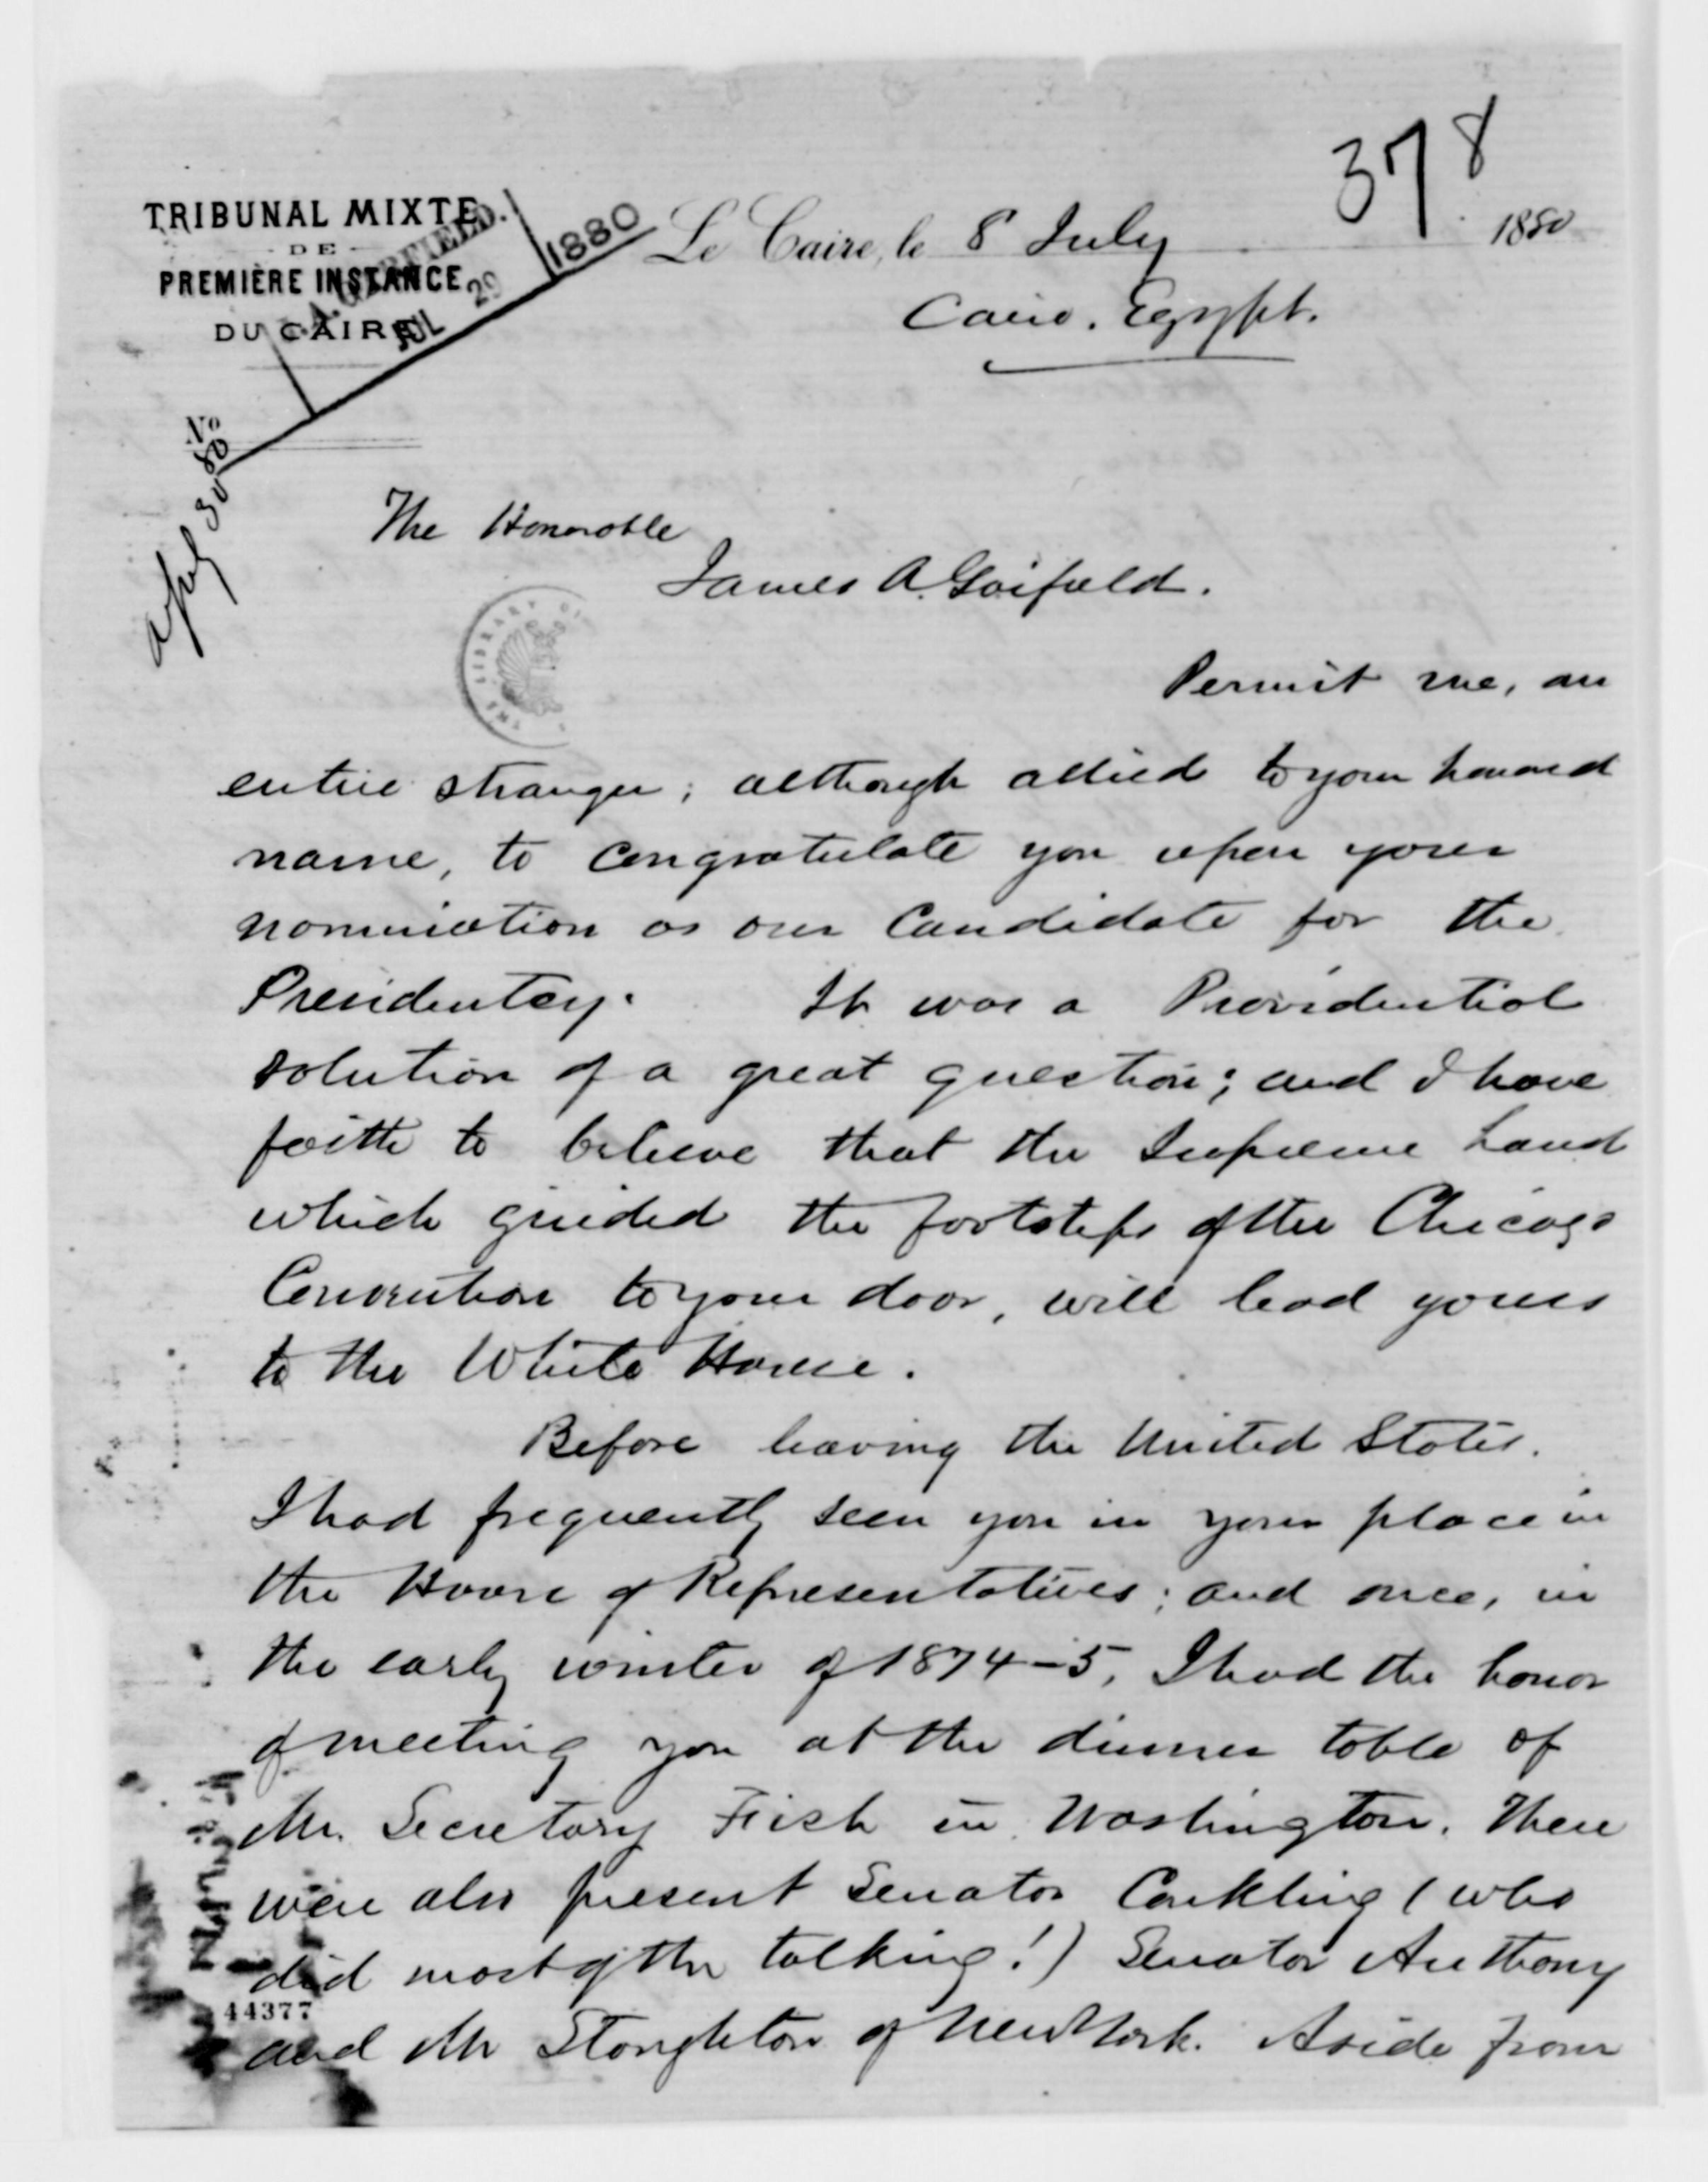 378
TRIBUNAL MIXTE
DE
PREMIÈRE INSTANCE
DU CAIRE
J. A. GARFIELD.
JUL 29 1880
Le Caire, le 8 July 1880
Cairo, Egypt.
No
30 80
The Honorable
James A. Garfield.
THE LIBRARY OF
Permit me, an
entire stranger; although allied to your honored
name, to congratulate you upon your
nomination as our Candidate for the
Presidentcy. It was a Providential
solution of a great question; and I have
faith to believe that the Supreme hand
which guided the footsteps of the Chicago
Convention to your door, will lead yours
to the White House.
Before leaving the United States.
I had frequently seen you in your place in
the House of Representatives; and once, in
the early winter of 1874-5, I had the honor
of meeting you at the dinner table of
Mr. Secretary Fish in Washington. There
were also present Senator Conkling (who
did most of the talking!) Senator Anthony
44377
and Mr Stoughton of New York. Aside from